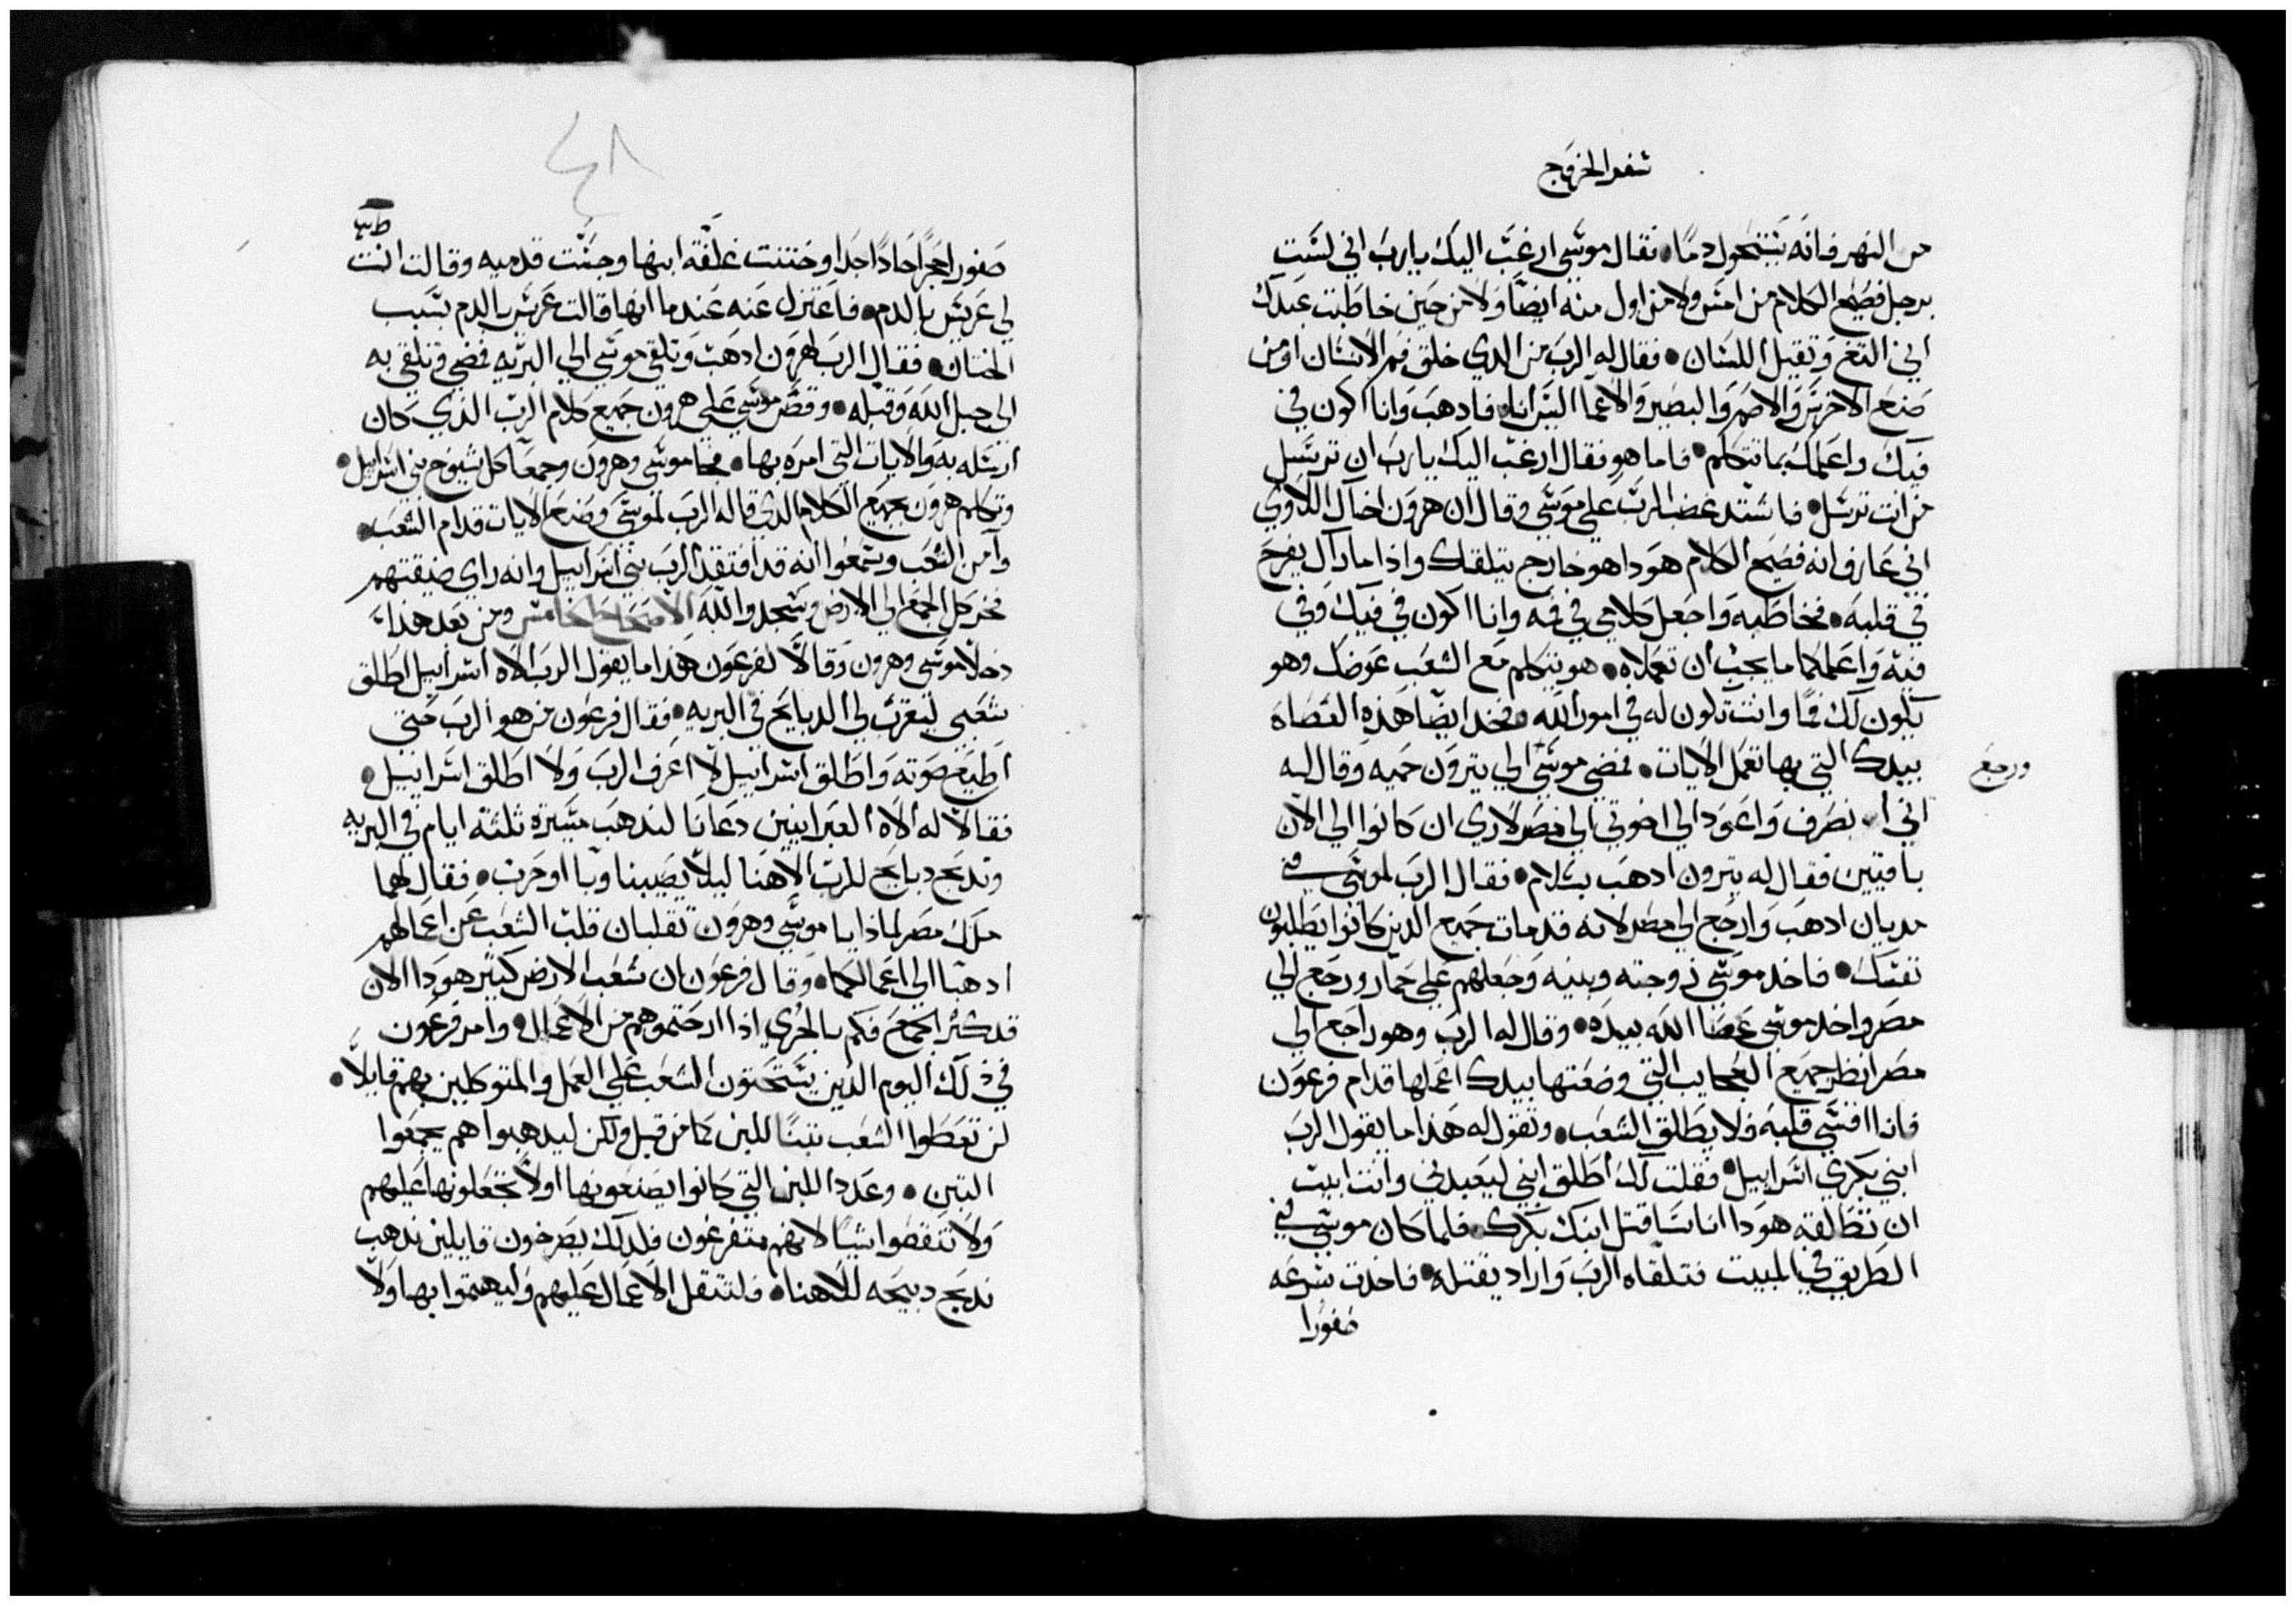 سفر الخروج
من النهر فانه يتحول دمًا • فقال موسى ارغب اليك يارب اني لست
برجل فصيح الكلام من امس ولا من اول منه ايضًا ولا من حين خاطبت عبدك
اني التغ وتقيل اللسان • فقال له الرب من الدي خلق فم الانسان او من
صنع الاخرس والاصم والبصير والاعما اليس انا • فادهب وانا اكون في
فيك واعلمك بما تتكلم • فاما هو فقال ارغب اليك يارب ان ترسل
من انت ترسل • فاشتد غضب الرب على موسى وقال ان هرون اخاك اللاوي
اني عارف انه فصيح الكلام هودا هو خارج يتلقاك واذا ما راك يفرح
في قلبه • فخاطبه واجعل كلامي في فه وانا اكون في فيك وفي
فيه واعلمكما ما يجب ان تعملاه • هو يتكلم مع الشعب عوضك وهو
يكون لك فمًا وانت تكون له في امور الله • فخد ايضًا هذه العصاه
بيدك التي بها تعمل الايات • فمضي موسى الي يترون حميه وقال له
ورجع
اني انصرف واعود الي اخوتي الي مصر لاري ان كانوا الي الان
باقيين فقال له يترون ادهب بسلام • فقال الرب لموسى في
مديان ادهب وارجع الي مصر لانه قد مات جميع الدين كانوا يطلبون
نفسك • فاخد موسى زوجته وبنيه وجعلهم على حمار ورجع الي
مصر واخد موسى عصا الله بيده • وقال له الرب وهو راجع الي
مصر انظر جميع العجايب التي وضعتها بيدك اعملها قدام فرعون
فانا اقسي قلبه فلا يطلق الشعب • وتقول له هذا ما يقول الرب
ابني بكري اسراييل • فقلت لك اطلق ابني ليعبدني وانت ابيت
ان تطلقه هودا انا ساقتل ابنك بكرك • فلما كان موسى في
الطريق في المبيت فتلقاه الرب واراد يقتله • فاخدت بسرعه
صفورا
٤٨
صفورا حجرًا حادًا جدا وختنت غلفة ابنها وجتت قدميه وقالت انت
لي عريس بالدم • فاعتزل عنه عندما انها قالت عريس بالدم بسبب
الختان • فقال الرب لهرون ادهب وتلقي موسى الي البريه فمضي فتلقي به
الي جبل الله وقبله • وقص موسى على هرون جميع كلام الرب الذي كان
ارسله به والايات التي امره بها • فجا موسى وهرون وجمعا كل شيوخ بني اسراييل •
وتكلم هرون بجميع الكلام الدي قاله الرب لموسى وصنع الايات قدام الشعب •
وآمن الشعب وسمعوا انه قد افتقد الرب بني اسراييل وانه راي ضيقتهم
فخر كل الجمع الي الارض وسجدوا لله الاصحاح الخامس ومن بعد هذا
دخلا موسى وهرون وقالا لفرعون هذا ما يقول الرب الاه اسراييل اطلق
شعبي ليقرب لي الدبايح في البريه • فقال فرعون من هو الرب حتى
اطيع صوته واطلق اسراييل لا اعرف الرب ولا اطلق اسراييل •
فقالا له الاه العبرانيين دعانا لندهب مسيرة ثلثة ايام في البريه
وندبح دبايح للرب الاهنا ليلا يصيبنا وبا او حرب • فقال لهما
ملك مصر لماذا يا موسى وهرون تقلبان قلب الشعب عن اعمالهم
ادهبا الي اعمالكما • وقال فرعون ان شعب الارض كبير هودا الان
قد كثر الجمع فكم بالحري اذا ارحتموهم من الاعمال • وامر فرعون
في ذلك اليوم الذين يستحتون الشعب على العمل والمتوكلين بهم قايلاً •
لن تعطوا الشعب تبنًا للبن كما من قبل ولكن ليدهبوا هم يجمعوا
التبن • وعدد اللبن التي كانوا يصنعونها اولاً تجعلونها عليهم
ولا تنقصوا شيًا لانهم متفرغون فلدلك يصرخون قايلين ندهب
ندبح دبيحه لالاهنا • فلتتقل الاعمال عليهم وليهتموا بها ولا